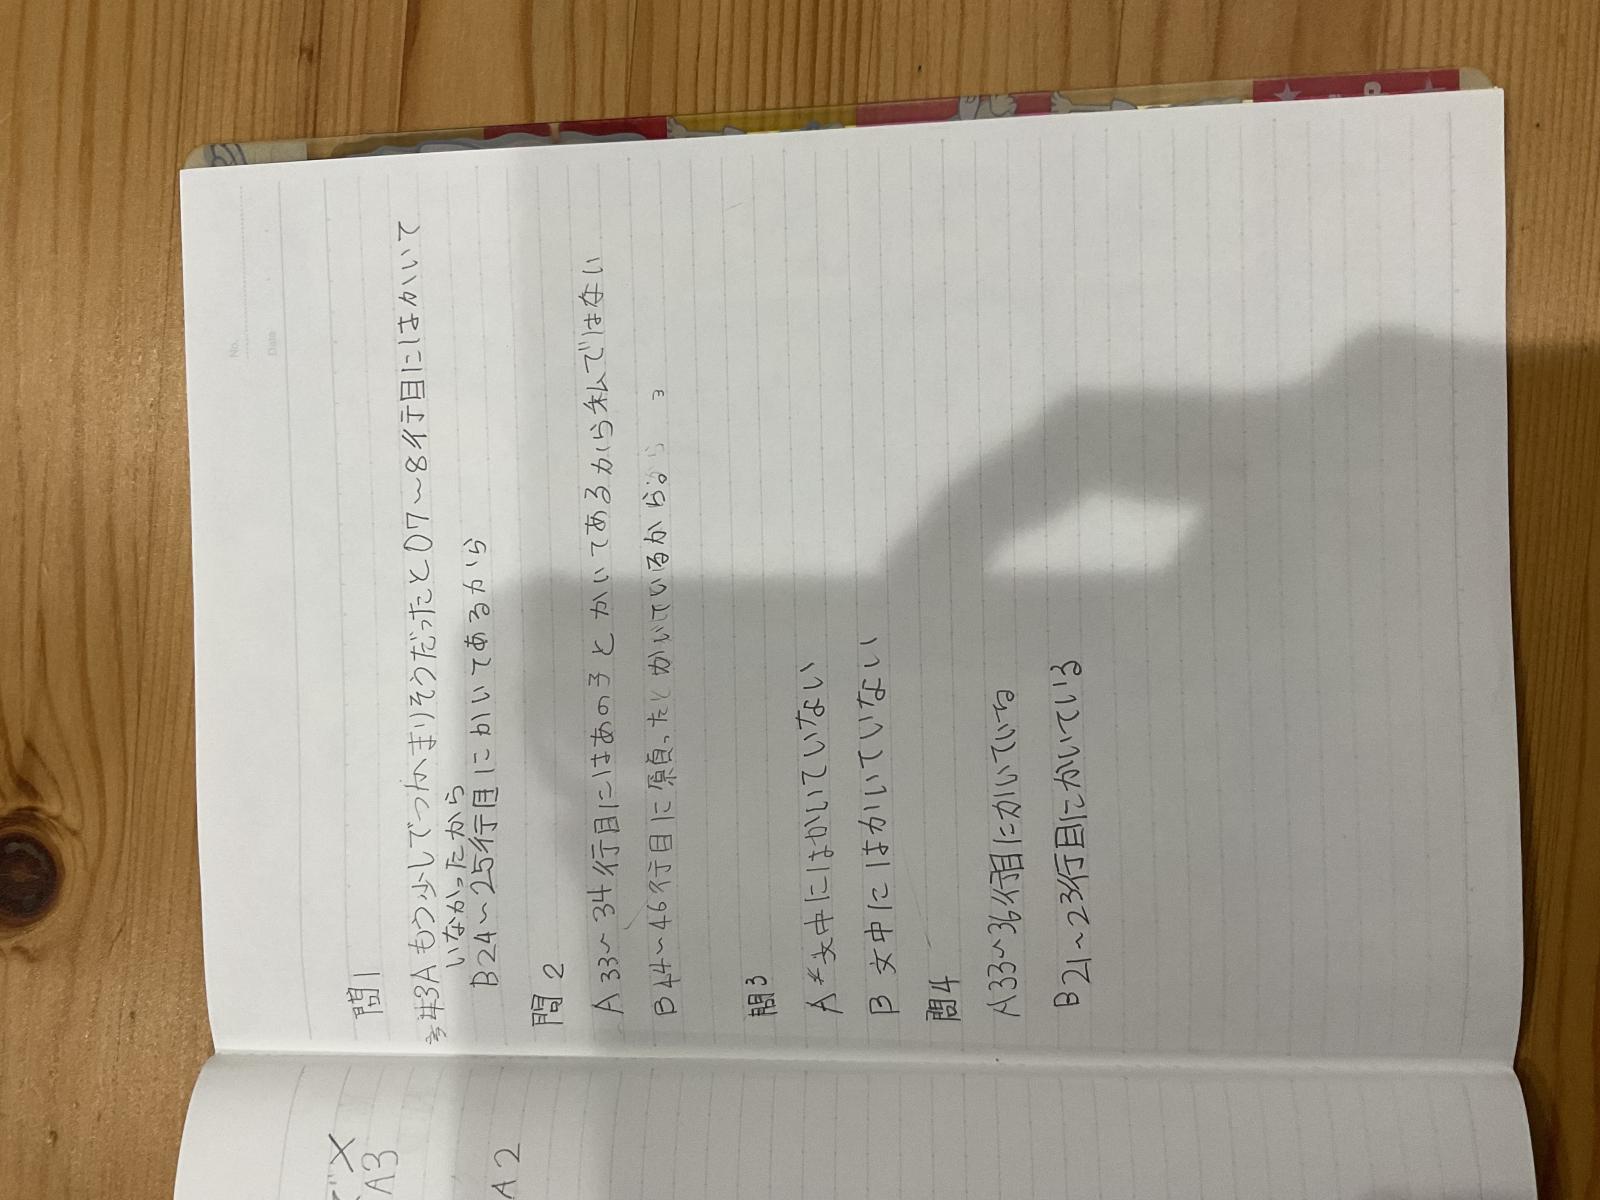 No.
Date
問1
A もう少しでつかまりそうだったと07～8行目にはかいて
いなかったから
B24～25行目にかいてあるから
問2
A 33～34行目にはあの子とかいてあるから私ではない
B 44～46行目に原貞ったとかいているから
問3
A 文中にはかいていない
B 文中にはかいていない
問4
A33～36行目にかいている
B21～23行目にかいている
A3
A2